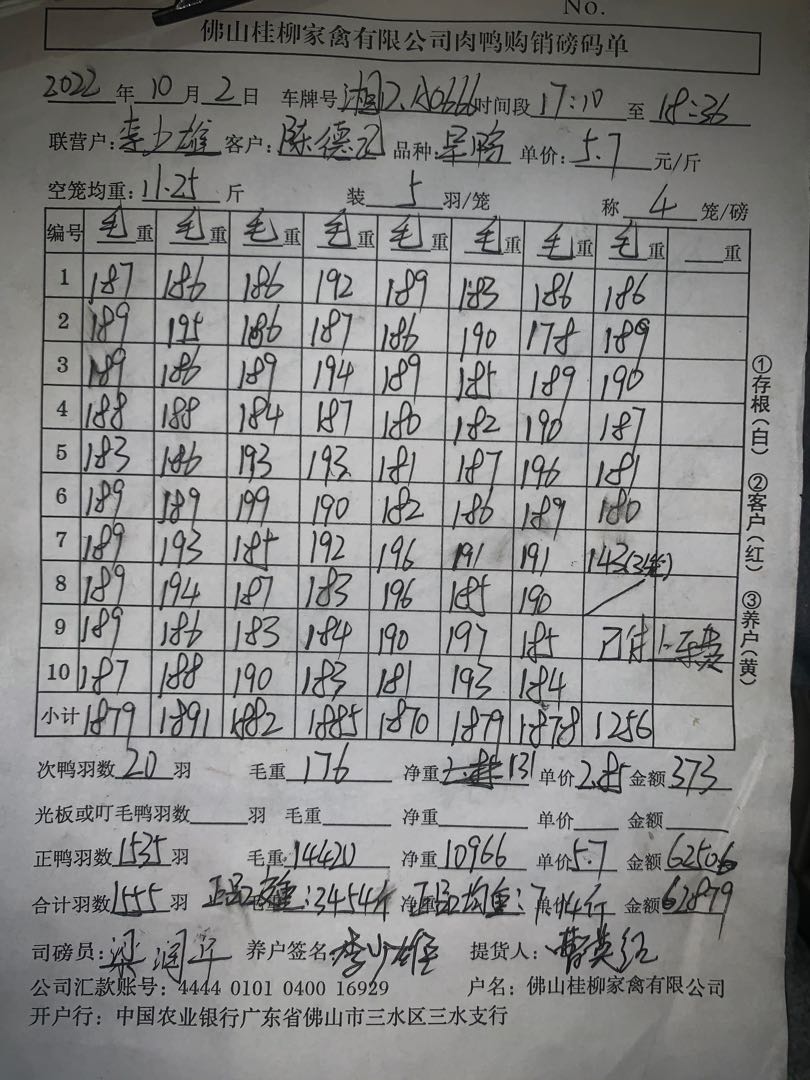 No.
佛山桂柳家禽有限公司肉鸭购销磅码单
2022年10月2日 车牌号 湘D.A0666 时间段 17:10 至 18:36
联营户:李少雄 客户:陈德 品种: 单价:5.7元/斤
空笼均重:11.25斤 装5羽/笼 称4笼/磅
编号 毛重 毛重 毛重 毛重 毛重 毛重 毛重 毛重 重
1 187 186 186 192 189 183 186 186
2 189 195 186 187 186 190 178 189
3 189 186 189 194 189 185 189 190
4 188 188 184 187 180 182 190 187
5 183 186 193 193 181 187 196 181
6 189 189 199 190 182 186 189 180
7 189 193 185 192 196 191 191 143(3笼)
8 189 194 187 183 196 185 190
9 189 186 183 184 190 197 185 已付上车费
10 187 188 190 183 181 193 184
小计 1879 1891 1882 1885 1870 1879 1878 1256
①存根(白) ②客户(红) ③养户(黄)
次鸭羽数20羽 毛重176 净重131 单价2.85 金额373
光板或叮毛鸭羽数 羽 毛重 净重 单价 金额
正鸭羽数1535羽 毛重14420 净重10966 单价5.7 金额62506
合计羽数1555羽 正品皮重:3454斤 正品均重:7.14斤 金额62879
司磅员:梁润华 养户签名:李少雄 提货人:曹英红
公司汇款账号:4444 0101 0400 16929 户名:佛山桂柳家禽有限公司
开户行:中国农业银行广东省佛山市三水区三水支行